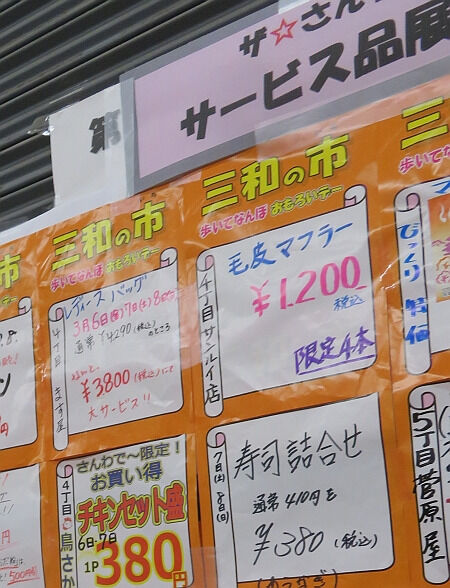 ザ☆さん
サービス品展
第
三和の市
歩いてなんぼ おもろいデー
レディースバッグ
3月6日(金)7日(土)8日
通常 ¥4290(税込)
のところ
¥3800(税込)にて
大サービス!!
4丁目 ますや
三和の市
歩いてなんぼ おもろいデー
毛皮マフラー
¥1,200
税込
限定4本
4丁目 サンルイ店
びっくり 特価
さんわで〜限定!
お買い得
チキンセット盛
6日・7日
1P 380円
4丁目 鳥さか
寿司詰合せ
通常 410円を
¥380(税込)
7日(土) 8日(日)
5丁目 菅原屋